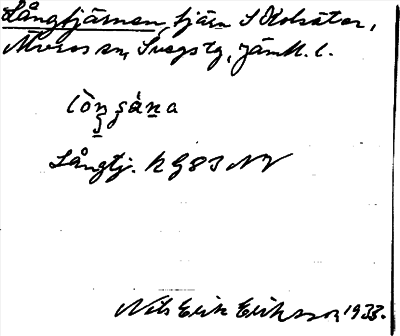 Långtjärnen, tjärn S Kolsätter,
Överog sn, Svegs tg, Jämtl. l.
lòŋʂána
Långtj. K G83 NV
Nils Erik Eriksson 1933.